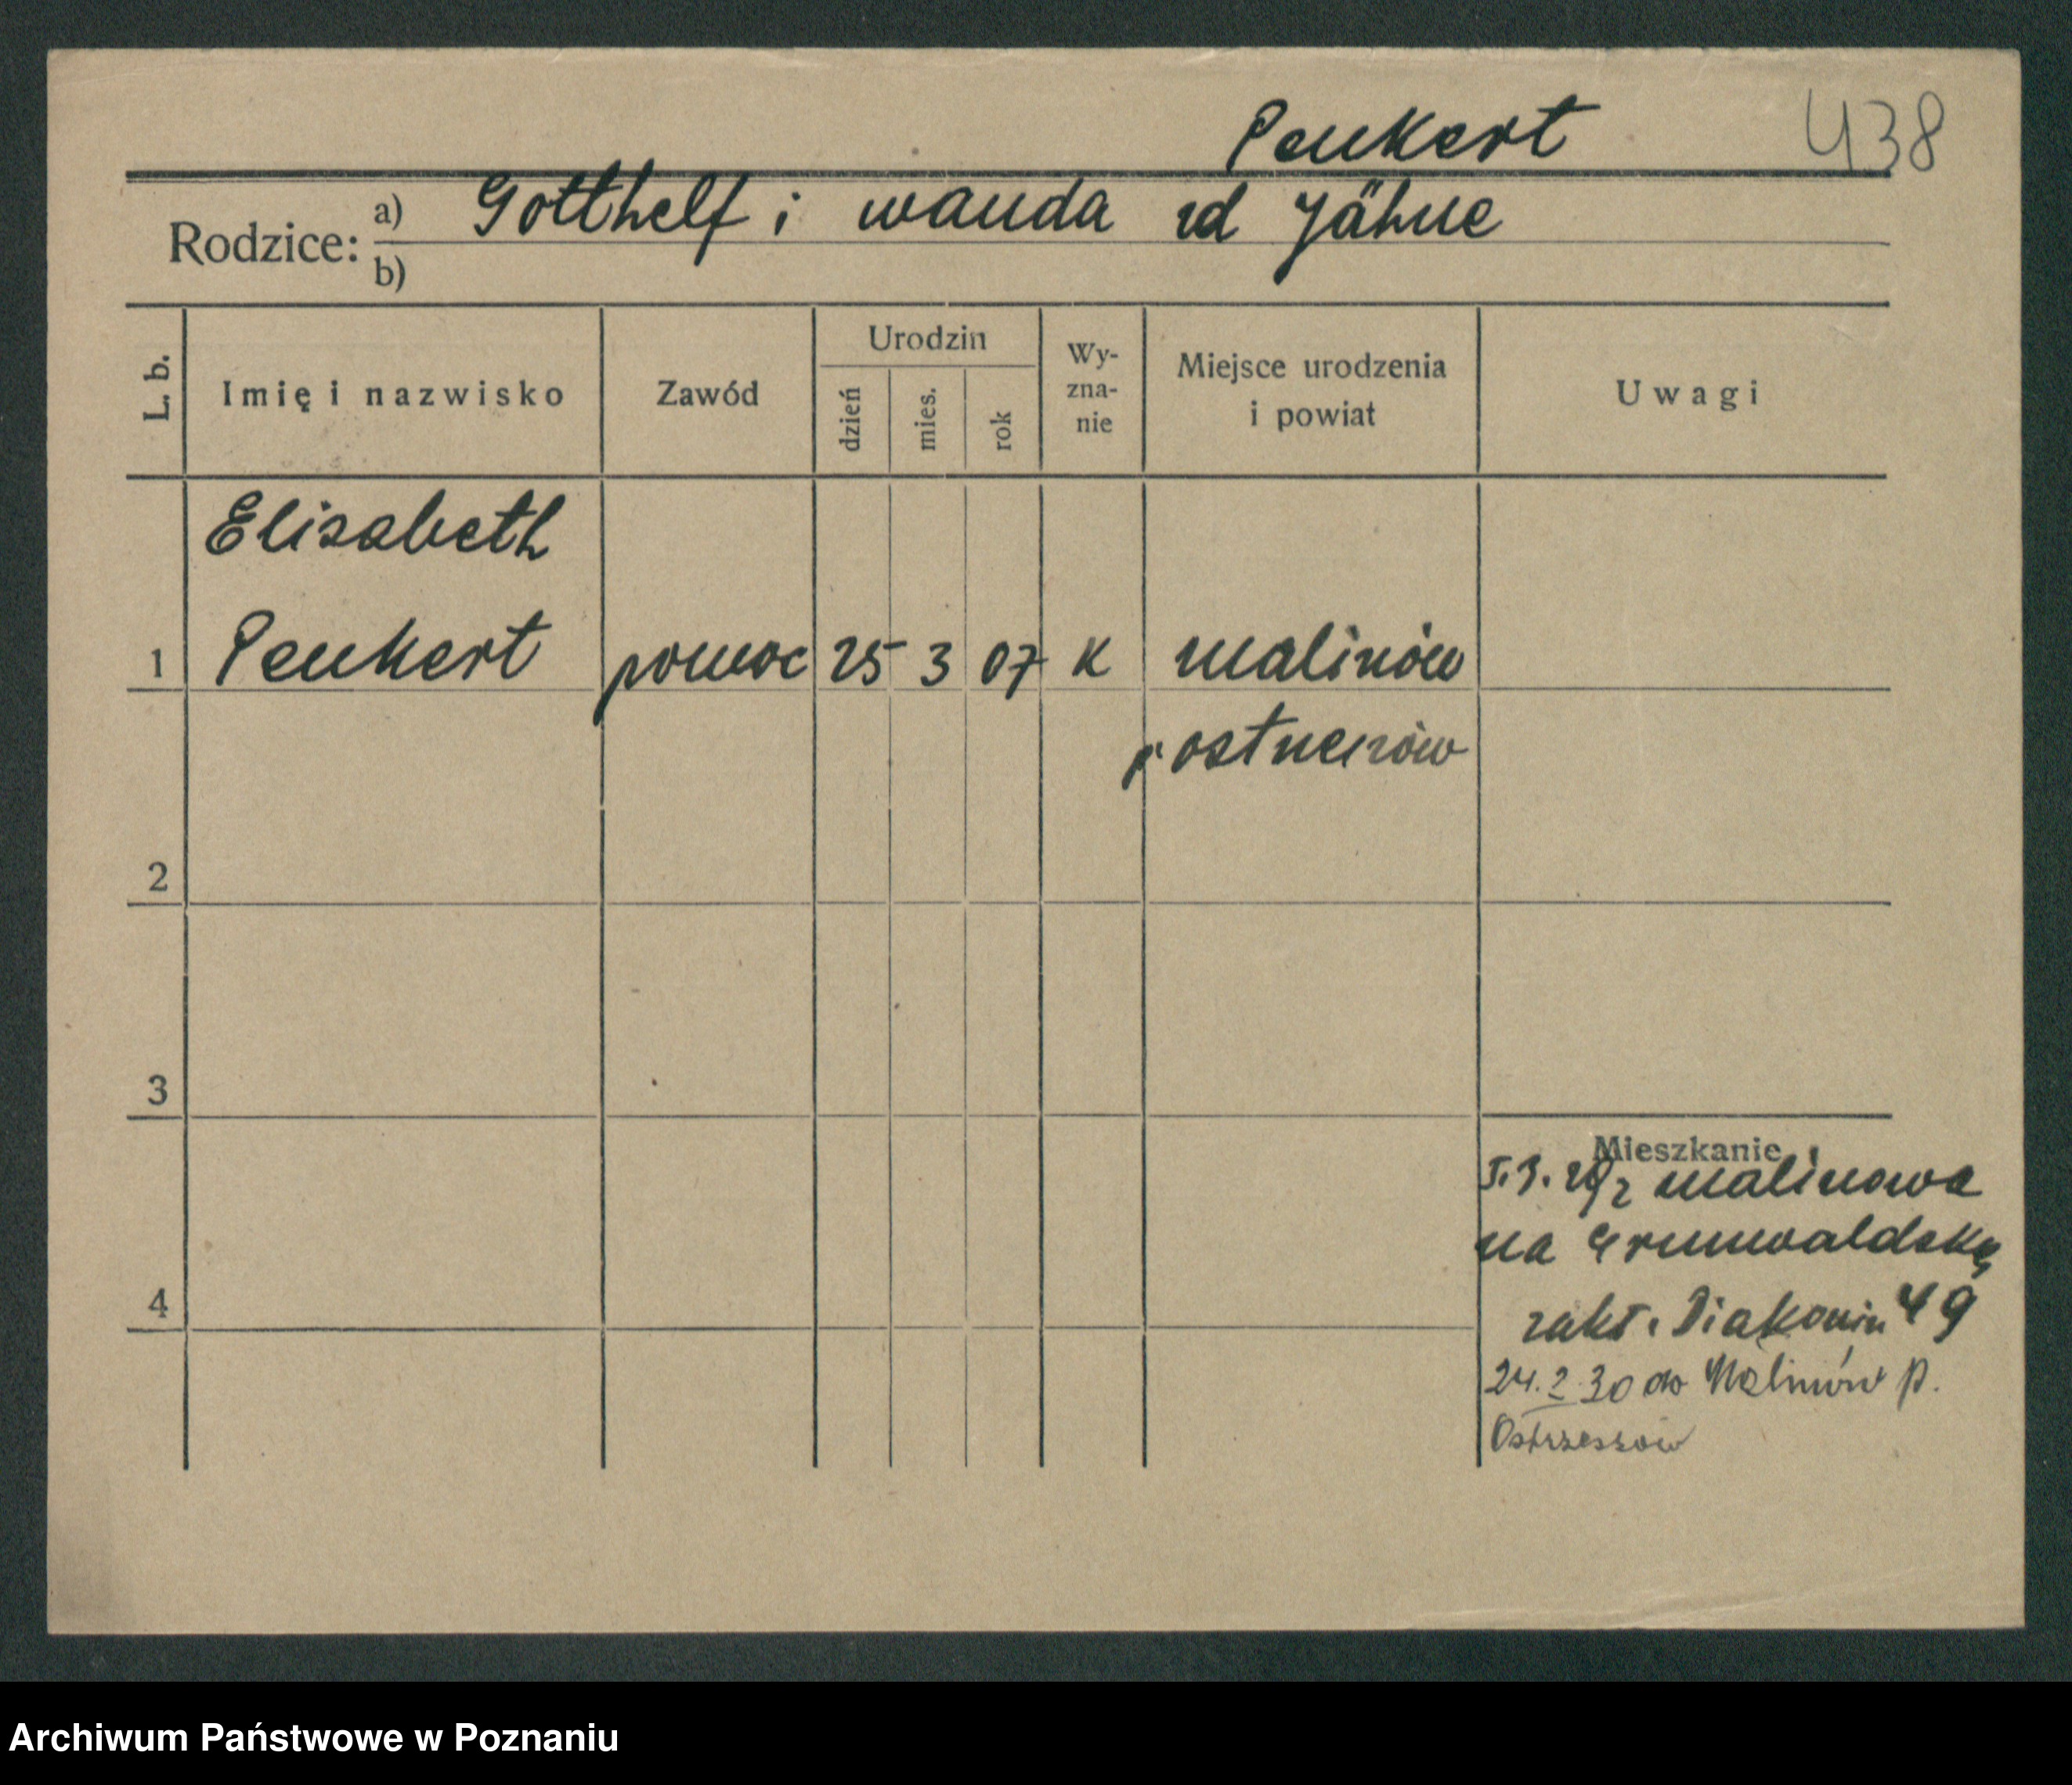 Peukert 438
Rodzice: a) Gotthelf i wanda zd Jähne
b)
L. b. Imię i nazwisko Zawód Urodzin dzień mies. rok Wy-zna-nie Miejsce urodzenia i powiat Uwagi
Elisabeth
1 Peukert pomoc 25 3 07 K malinów
p. ostrzeszów
2
3
Mieszkanie
z malinowa
na Grunwaldską
4 zakł. Diakonis 49
24.2.30 do Malinów p.
Ostrzeszów
Archiwum Państwowe w Poznaniu